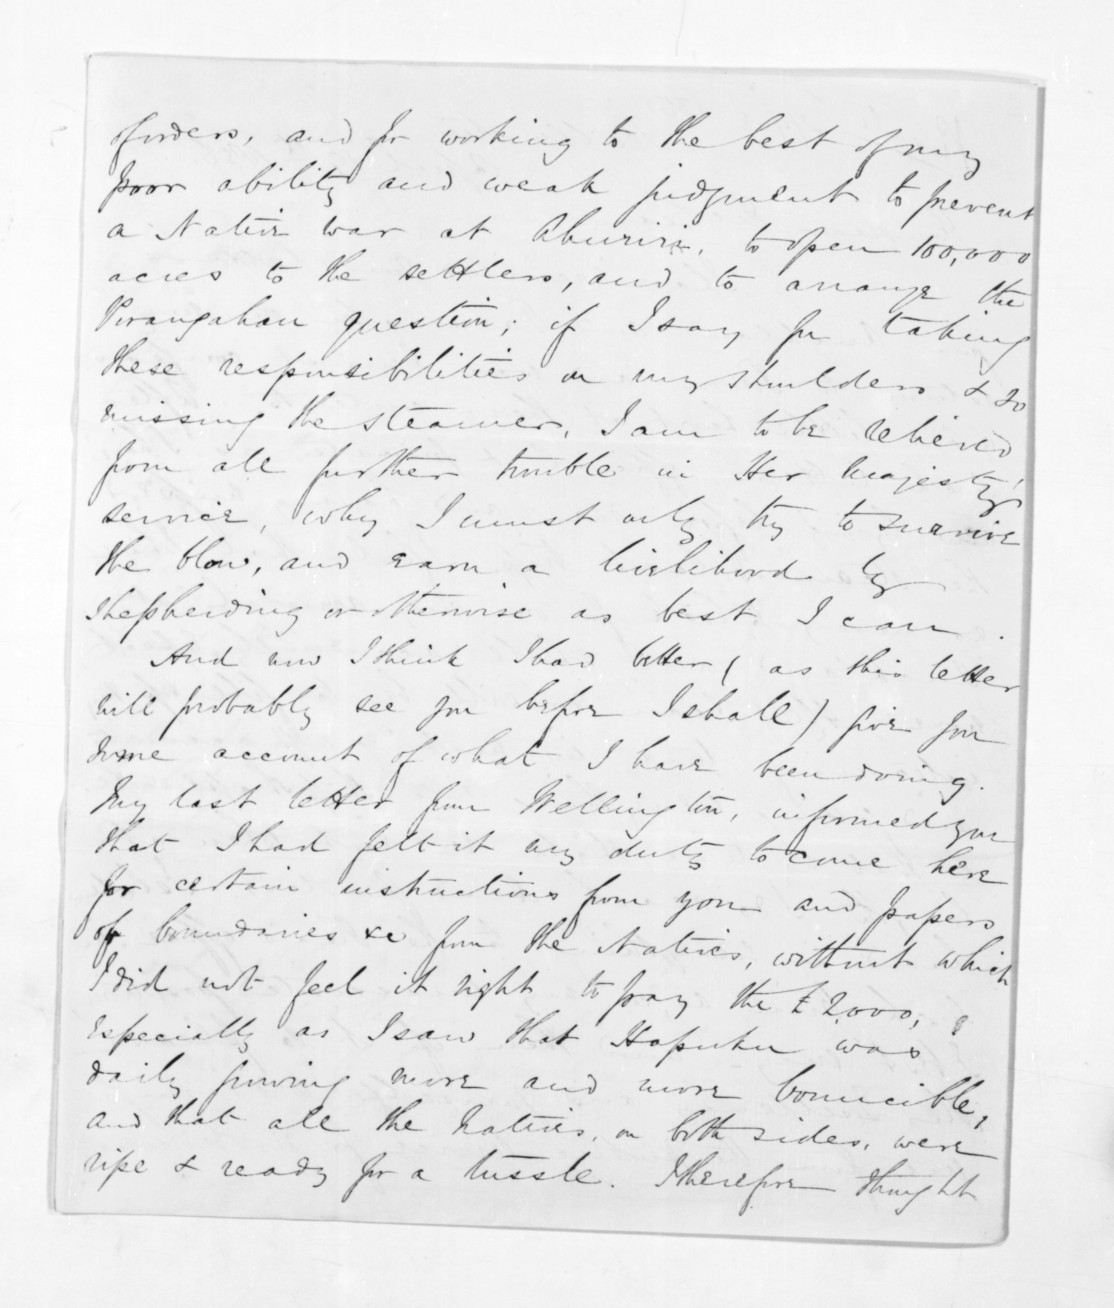 of orders, and for working to the best of my
poor ability and weak judgment to prevent
a Native war at Ahuriri, to open 100,000
acres to the settlers, and to arrange the
Porangahau question; if I say for taking
these responsibilities on my shoulders & so
missing the steamer, I am to be relieved
from all further trouble in Her Majesty's
service, why I must only try to survive
the blow, and earn a livelihood by
shepherding or otherwise as best I can.
And now I think I had better (as this letter
will probably see you before I shall) give you
some account of what I have been doing.
My last letter from Wellington, informed you
that I had felt it my duty to come here
for certain instructions from you and papers
of boundaries &c from the Natives, without which
I did not feel it right to pay the £2,000,
especially as I saw that Hapuku was
daily growing more and more bouncible,
and that all the Natives, on both sides, were
ripe & ready for a tussle. I therefore thought